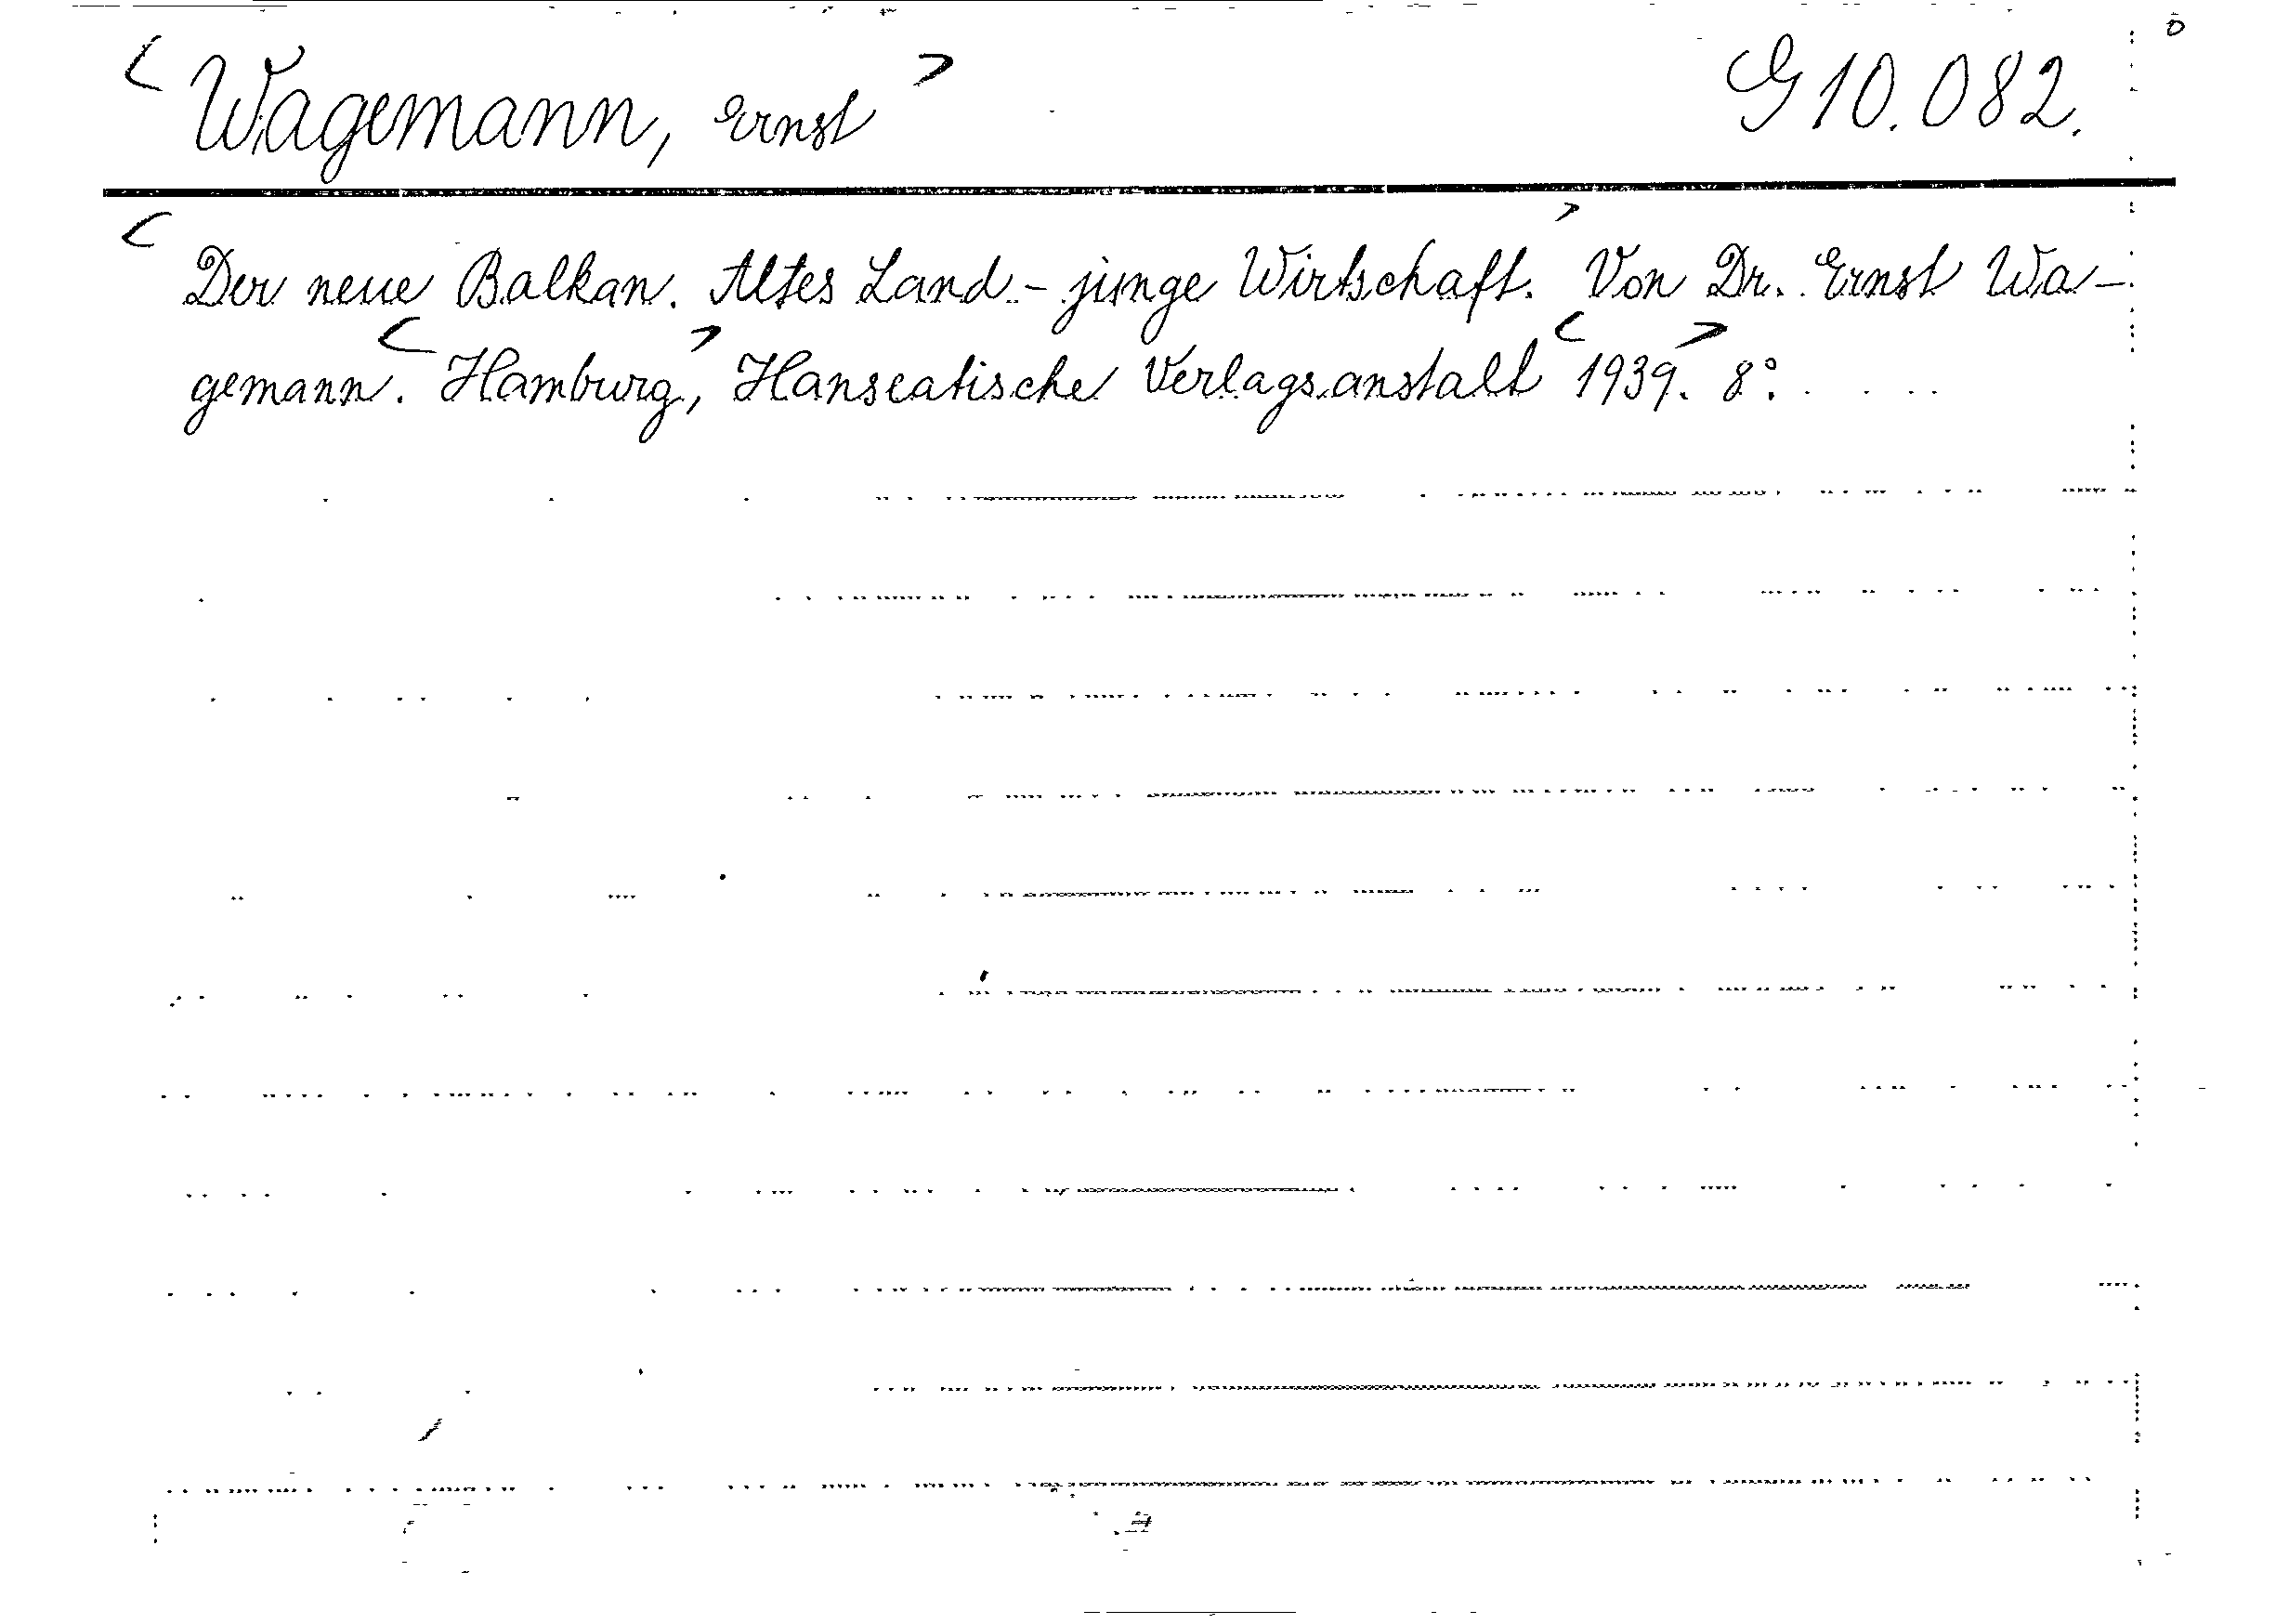 < Wagemann, Ernst > G 10.082.
< Der neue Balkan. Altes Land - junge Wirtschaft. > Von Dr. Ernst Wa-
gemann. < Hamburg, > Hanseatische Verlagsanstalt < 1939. > 8°.